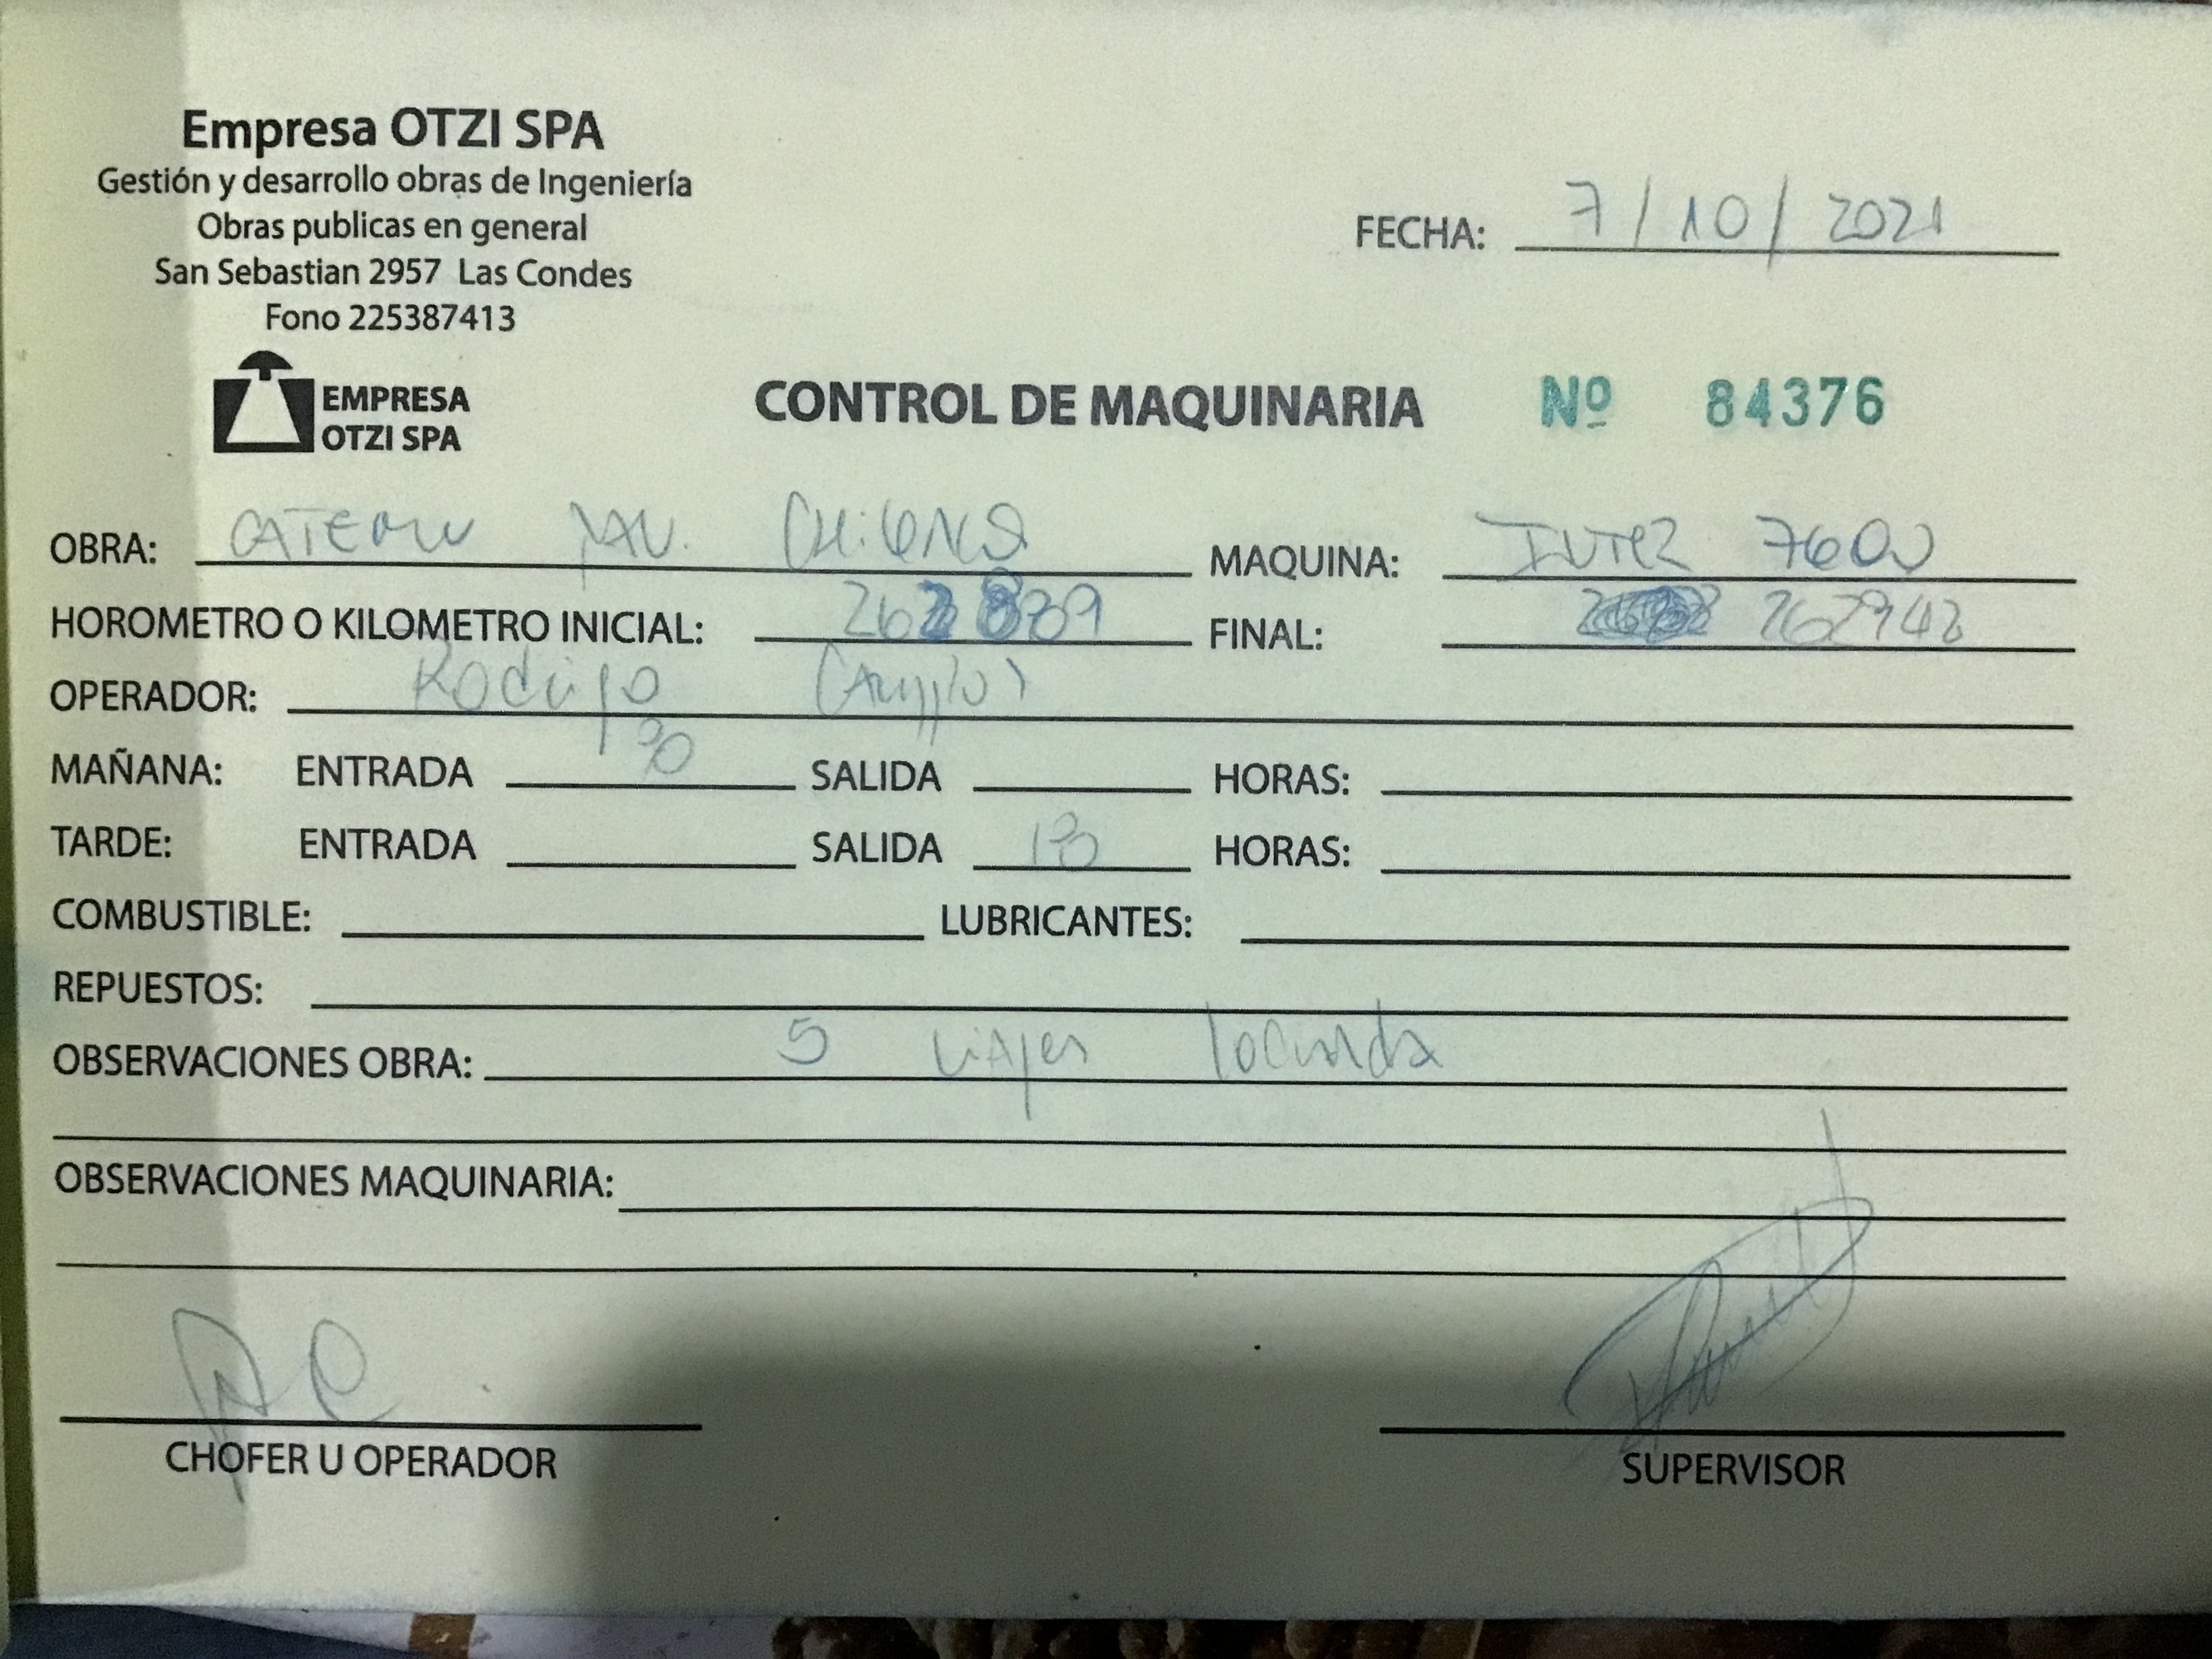 Empresa OTZI SPA
Gestión y desarrollo obras de Ingeniería
Obras publicas en general
San Sebastian 2957 Las Condes
Fono 225387413
FECHA: 7/10/2021
EMPRESA
OTZI SPA
CONTROL DE MAQUINARIA Nº 84376
OBRA: CHILENA MAQUINA: INTER 7600
HOROMETRO O KILOMETRO INICIAL: 262839 FINAL: 262942
OPERADOR: Rodrigo Campos
MAÑANA: ENTRADA SALIDA HORAS:
TARDE: ENTRADA SALIDA HORAS:
COMBUSTIBLE: LUBRICANTES:
REPUESTOS:
OBSERVACIONES OBRA: 5 viajes
OBSERVACIONES MAQUINARIA:
CHOFER U OPERADOR
SUPERVISOR